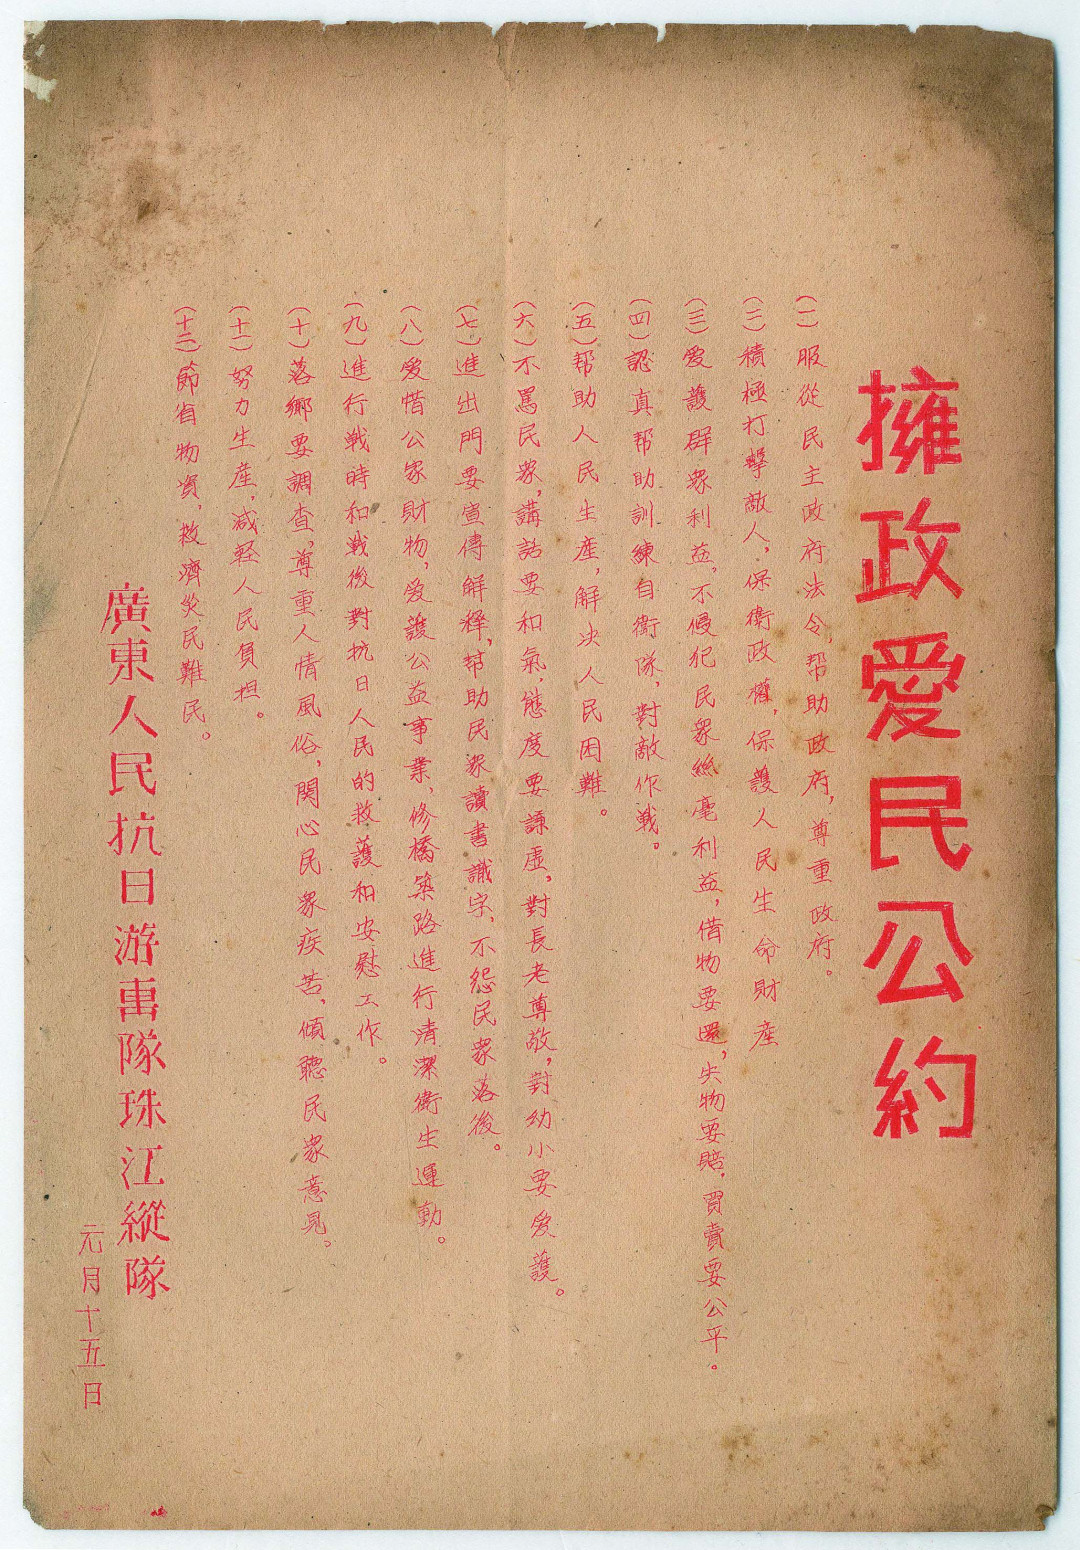 擁政愛民公約
(一)服從民主政府法令，帮助政府，尊重政府。
(二)積極打擊敵人，保衛政權，保護人民生命財產
(三)爱護群衆利益，不侵犯民衆絲毫利益，借物要還，失物要賠，買賣要公平。
(四)認真帮助訓練自衛隊，對敵作戰。
(五)帮助人民生產，解决人民困難。
(六)不罵民衆，講話要和氣，態度要謙虚，對長老尊敬，對幼小要爱護。
(七)進出門要宣傳解释，帮助民衆讀書識字，不怨民衆落後。
(八)爱惜公家財物，爱護公益事業，修橋築路進行清潔衛生運動。
(九)進行戰時和戰後對抗日人民的救護和安慰工作。
(十)落鄉要調查，尊重人情風俗，関心民衆疾苦，傾聽民衆意見。
(十一)努力生產，减轻人民負担。
(十二)節省物資，救濟災民難民。
廣東人民抗日游击隊珠江縱隊
元月十五日